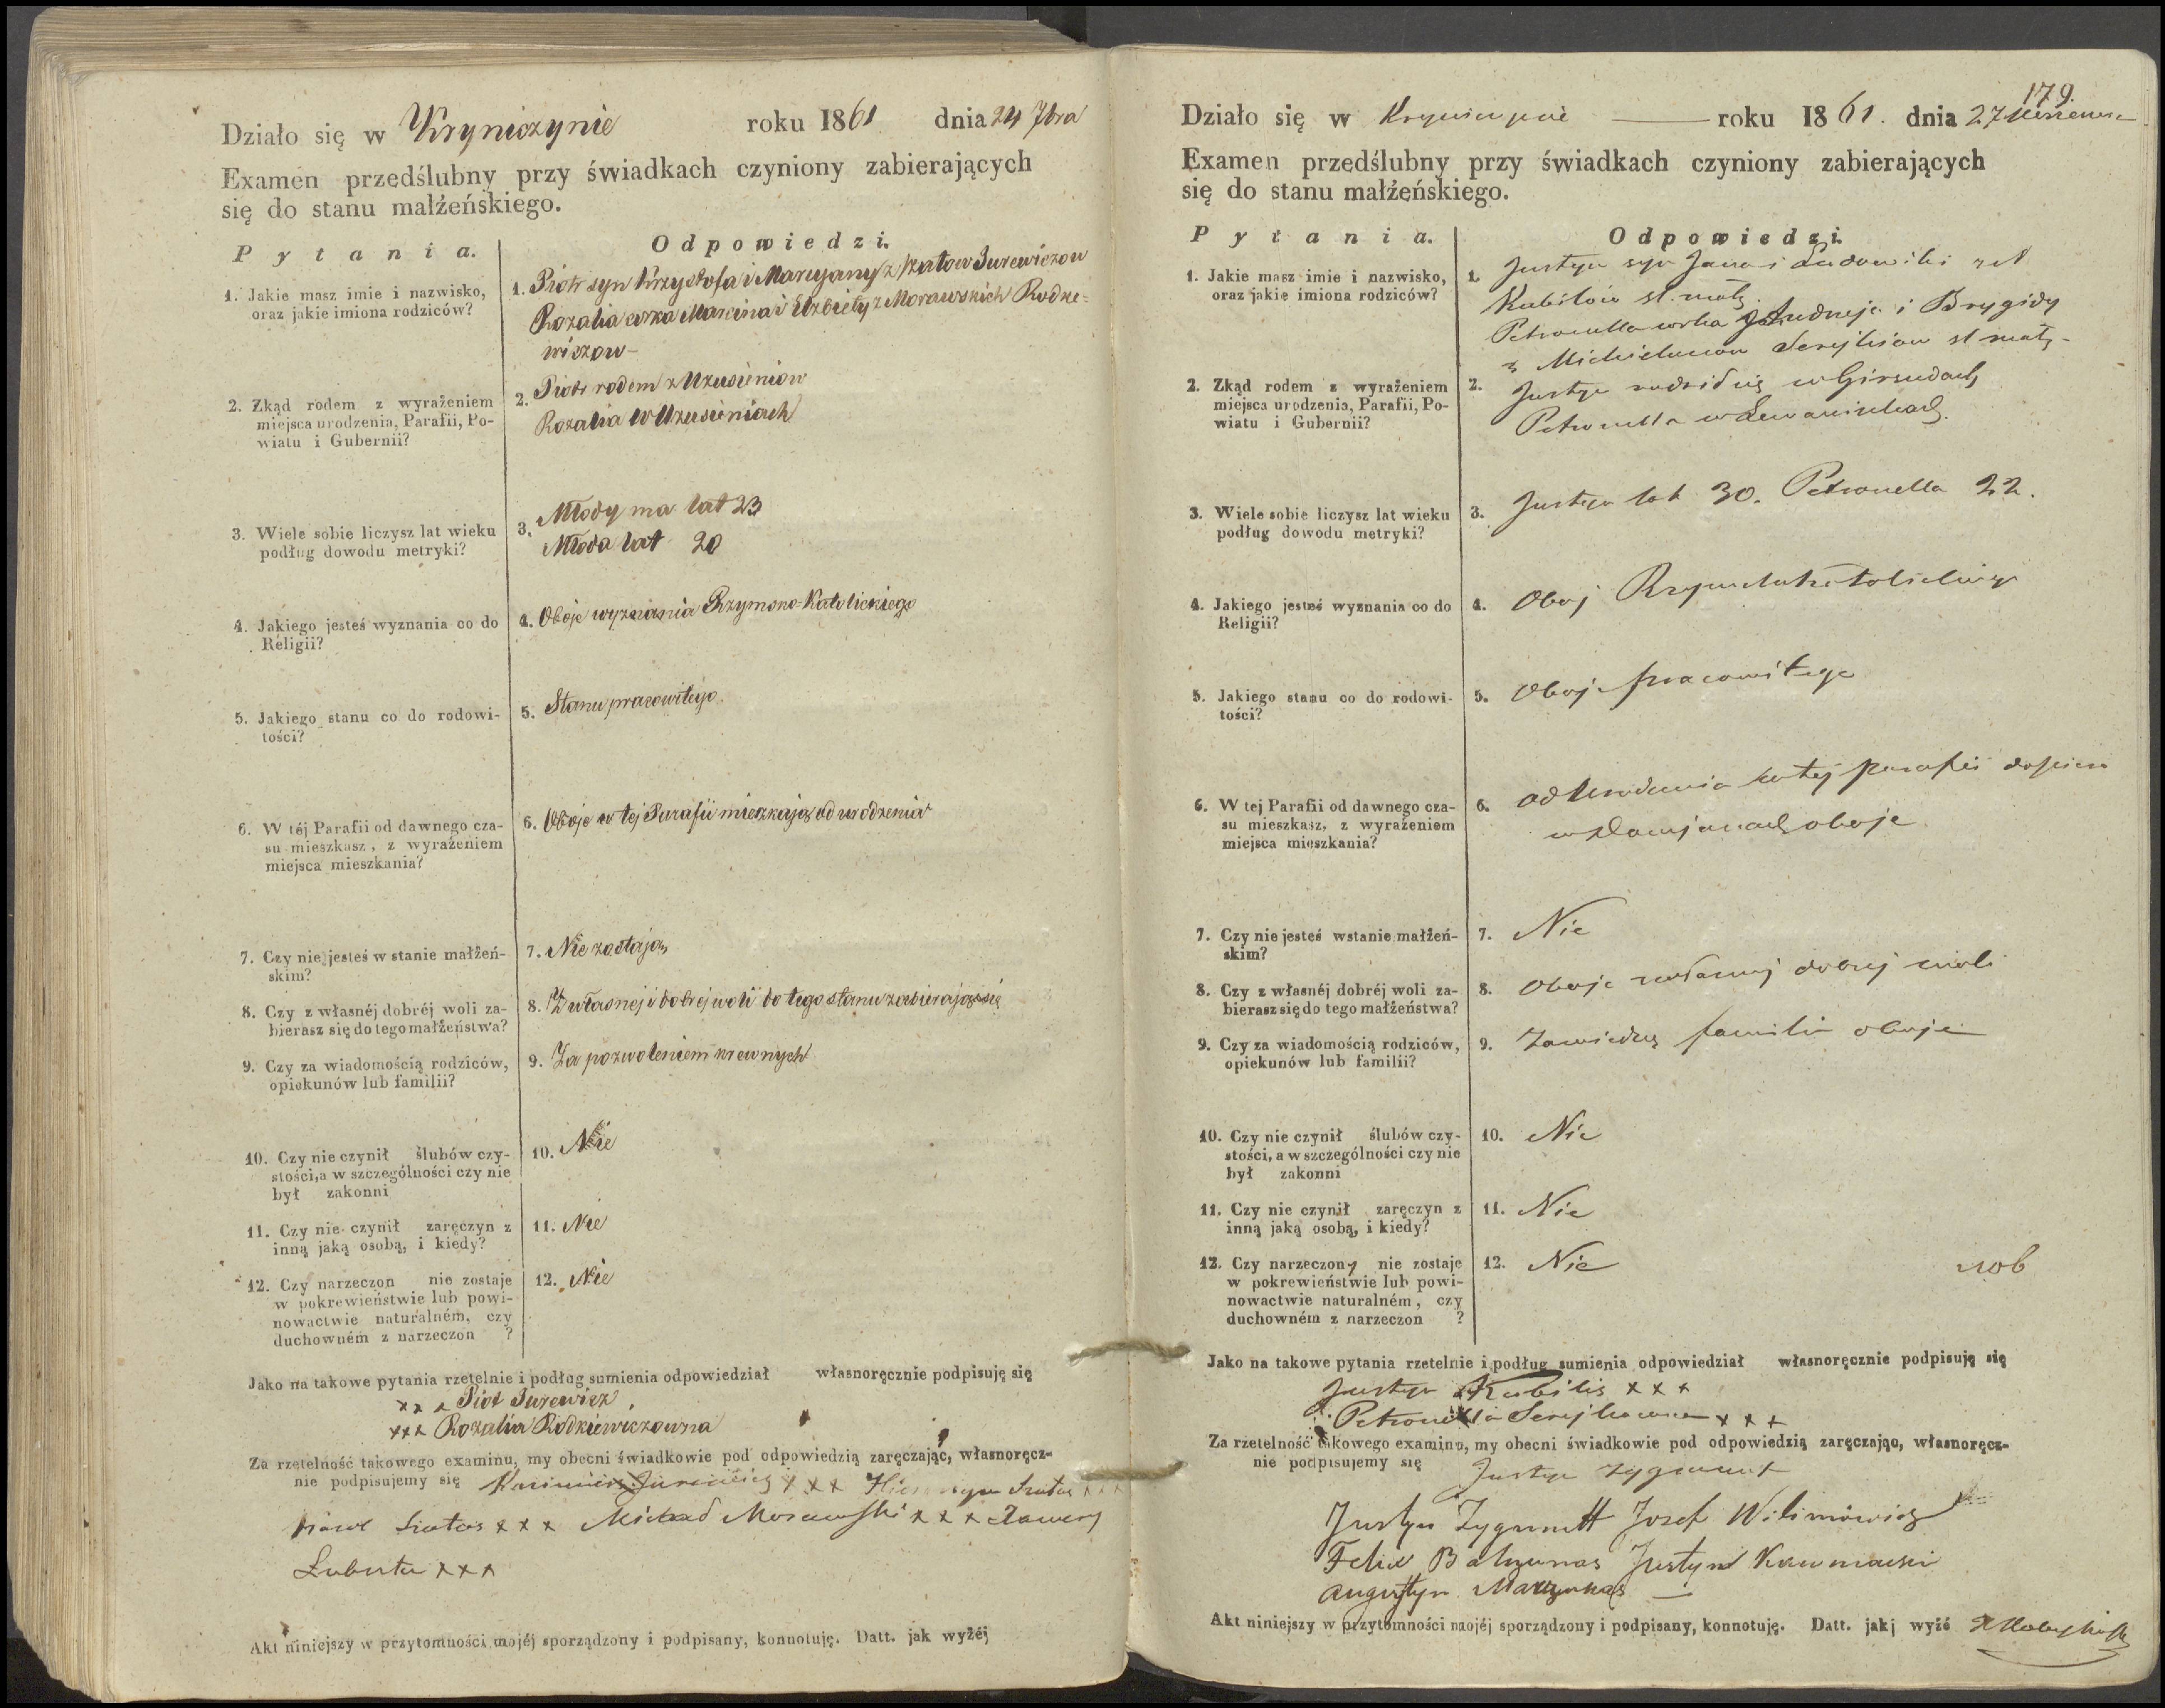 Działo się w Kryniczynie roku 1861 dnia 24 7bra
Examen przedślubny przy świadkach czyniony zabierających
się do stanu małżeńskiego.
Pytania. Odpowiedzi.
1. Jakie masz imie i nazwisko,
oraz jakie imiona rodziców?
1. Piotr syn Krzysztofa i Maryanny z Szatow Jurewiczow
Rozalia corka Marcina i Elzbiety z Morawskich Rodke=
wiczow
2. Zkąd rodem z wyrażeniem
miejsca urodzenia, Parafii, Po-
wiatu i Gubernii?
2. Piotr rodem z Uzusieniow
Rozalia w Uzusieniach
3. Wiele sobie liczysz lat wieku
podług dowodu metryki?
3. Młody ma lat 23
Młoda lat 20
4. Jakiego jesteś wyznania co do
Religii?
4. Oboje wyznania Rzymsno=Katolickiego
5. Jakiego stanu co do rodowi-
tości?
5. Stanu pracowitego.
6. W téj Parafii od dawnego cza-
su mieszkasz, z wyrażeniem
miejsca mieszkania?
6. Oboje w tej Parafii mieszkają od urodzenia
7. Czy nie jesteś w stanie małżeń-
skim?
7. Nie zostają
8. Czy z własnéj dobréj woli za-
bierasz się do tego małżeństwa?
8. Z własnej i dobrej woli do tego stanu zabierają się
9. Czy za wiadomością rodziców,
opiekunów lub familii?
9. Za pozwoleniem krewnych
10. Czy nie czynił ślubów czy-
stości, a w szczególności czy nie
był zakonni
10. Nie
11. Czy nie czynił zaręczyn z
inną jaką osobą, i kiedy?
11. Nie
12. Czy narzeczon nie zostaje
w pokrewieństwie lub powi-
nowactwie naturalném, czy
duchowném z narzeczon ?
12. Nie
Jako na takowe pytania rzetelnie i podług sumienia odpowiedział własnoręcznie podpisuję się
xxx Piotr Jurewicz
xxx Rozalia Rodkiewiczowna
Za rzetelność takowego examinu, my obecni świadkowie pod odpowiedzią zaręczając, własnoręcz-
nie podpisujemy się Kazimierz Jurewicz xxx Hieronym Szatas xxx
Szatas xxx Michał Morawski xxx Xawery
Labuta xxx
Akt niniejszy w przytomności mojéj sporządzony i podpisany, konnotuję. Datt. jak wyżéj
179.
Działo się w Kryniczynie roku 1861. dnia 27
Examen przedślubny przy świadkach czyniony zabierających
się do stanu małżeńskiego.
Pytania. Odpowiedzi.
1. Jakie masz imie i nazwisko,
oraz jakie imiona rodziców?
1. Justyn syn Jana i Ludowiki
Kubilow sl. małż.
Petronella corka Andrzeja i Brygidy
z sl małż.
2. Zkąd rodem z wyrażeniem
miejsca urodzenia, Parafii, Po-
wiatu i Gubernii?
2. Justyn rodził się w Girsudach
Petronella w
3. Wiele sobie liczysz lat wieku
podług dowodu metryki?
3. Justyn lat 30. Petronella 22.
4. Jakiego jesteś wyznania co do
Religii?
4. Oboj Rzymskokatolickiego
5. Jakiego stanu co do rodowi-
tości?
5. Oboje pracowitego
6. W tej Parafii od dawnego cza-
su mieszkasz, z wyrażeniem
miejsca mieszkania?
6. od urodzenia w tej parafii
oboje
7. Czy nie jesteś wstanie małżeń-
skim?
7. Nie
8. Czy z własnéj dobréj woli za-
bierasz się do tego małżeństwa?
8. Oboje z własnej dobrej woli
9. Czy za wiadomością rodziców,
opiekunów lub familii?
9. Za wiedzą familii oboje
10. Czy nie czynił ślubów czy-
stości, a w szczególności czy nie
był zakonni
10. Nie
11. Czy nie czynił zaręczyn z
inną jaką osobą, i kiedy?
11. Nie
12. Czy narzeczony nie zostaje
w pokrewieństwie lub powi-
nowactwie naturalném, czy
duchowném z narzeczon ?
12. Nie
Jako na takowe pytania rzetelnie i podług sumienia odpowiedział własnoręcznie podpisuję się
Justyn Kubilis xxx
Petronella xxx
Za rzetelność takowego examinu, my obecni świadkowie pod odpowiedzią zaręczając, własnoręcz-
nie podpisujemy się Justyn Zygmunt
Justyn Zygmuntt Jozef Wilimowicz
Felix Balzunas Justyn Kawnacki
Augustyn Marzunas
Akt niniejszy w przytomności mojéj sporządzony i podpisany, konnotuję. Datt. jakj wyżé